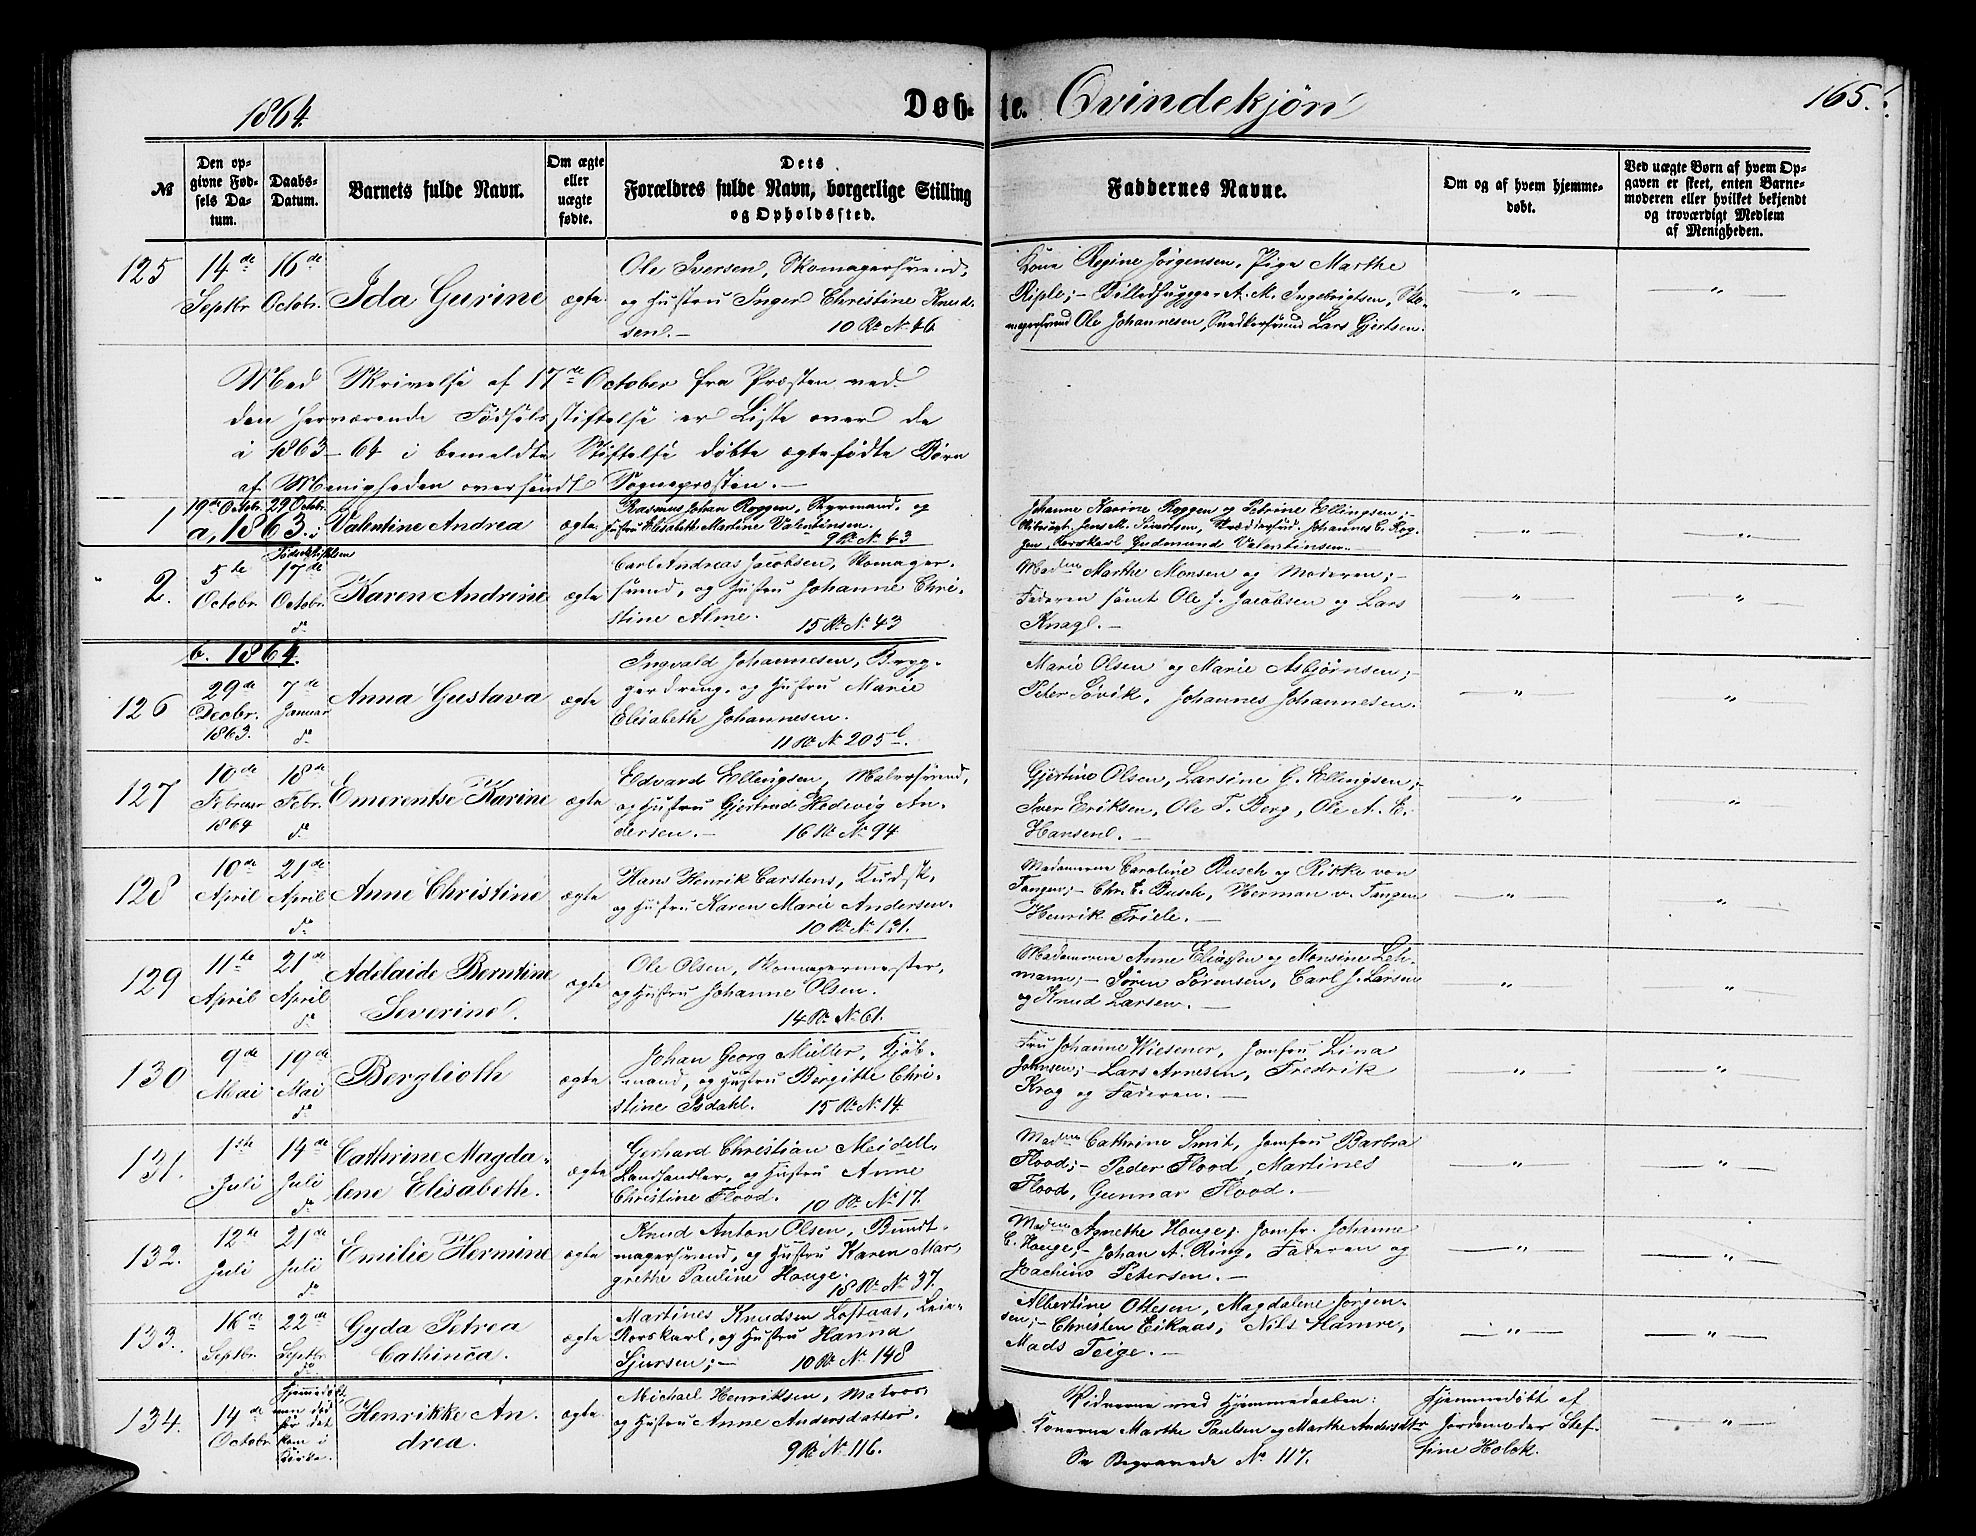 1864.
Døb-te. Qvindekjøn
165.
№
Den op-
givne Fød-
sels Da-
tum.
Daabs-
Datum.
Barnets fulde Navn.
Om ægte
eller
uægte
fødte.
Dets
Forældres fulde Navn, borgerlige Stilling
og Opholdssted.
Faddernes Navne.
Om og af hvem hjemme-
døbt.
Ved uægte Børn af hvem Op-
gaven er skeet, enten Barne-
moderen eller hvilket bekjendt
og troværdigt Medlem
af Menigheden.
125
14de
Septbr
16de
Octobr.
Ida Gurine
ægte
Ole Iversen, Skomagersvend,
og Hustru Inger Christine Knud-
sen.-
10 R. N. 46
Kone Regine Jørgensen, Pige Marthe
Riple;- Billedhugger A. M. Ingebrigtsen, Sko-
magersvend Ole Johannesen, Snedkersvend Lars Gjertsen.
Med Skrivelse af 17de October fra Præsten ved
den herværende Fødselsstiftelse er Liste over de
i 1863-64 i bemeldte Stiftelse døbte ægtefødte Børn
af Menigheden oversendt Sognepræsten.-
1
19de Octobr.
29 Octobr.
a, 1863. i
Fødselsstiftelsen
Valentine Andrea
ægte
Rasmus Johan Roggen, Styrmand, og
Hustru Elisabeth Martine Valentinsen.
9 R. N. 43
Johanne Karine Roggen og Petrine Ellingsen;-
Jens M. Sivertsen, Skræddersvd. Johannes C. Rog-
gen, Gudmund Valentinsen.-
2.
5te
Octobr
17de
Octobr.
do
Karen Andrine
ægte
Carl Andreas Jacobsen, Skomager-
svend, og Hustru Johanne Chri-
stine Alme.
15 R. N. 43
Madm Marthe Monsen og Moderen;-
Faderen samt Ole J. Jacobsen og Lars
Knagl.-
b. 1864.
126
29de
Decbr.
1863.
7de
Januar
do
Anna Gustava
ægte
Ingvald Johannesen, Bryg-
gerdreng, og Hustru Marie
Elisabeth Johannesen.
11 R. N. 205b.
Marie Olsen og Marie Asbjørnsen;-
Peter Løvik, Johannes Johannesen.
127
10de
Februar
1864
18de
Febr.
do
Emerentse Karine
ægte
Edvard Ellingsen, Malersvend,
og Hustru Gjertrud Hedevig An-
dersen.-
16 R. N. 94
Gjertine Olsen, Larsine G. Ellingsen;-
Iver Eriksen, Ole T. Berg, Ole A. E.
Hansen.-
128
10de
April
21de
April
do
Anne Christine
ægte
Hans Henrik Carstens, Kudsk,
og Hustru Karen Marie Andersen.
10 R. N. 121.
Madamerne Caroline Busch og Rikke von
Tangen;- Chr. E. Busch, Herman v. Tangen
Henrik Friele.-
129
11te
April
21de
April
do
Adelaide Berntine
Severine.
ægte
Ole Olsen, Skomagermester,
og Hustru Johanne Olsen.
14 R. N. 61.
Madamerne Anne Eliassen og Monsine Leh-
mann;- Søren Sørensen, Carl J. Larsen
og Knud Larsen.-
130
9de
Mai
19de
Mai
do
Berglioth
ægte
Johan Georg Müller, Kjøb-
mand, og Hustru Birgitte Chri-
stine Isdahl.
15 R. N. 14.
Fru Johanne Wiesener, Jomfru Lina
Johnsen;- Lars Arnesen, Fredrik
Krog og Faderen.-
131.
1ste
Juli
14de
Juli
do
Cathrine Magda-
lene Elisabeth.
ægte
Gerhard Christian Meidell
Landhandler, og Hustru Anne
Christine Flood.
10 R. N. 17.
Madm Cathrine Smit, Jomfru Barbra
Flood;- Peder Flood, Martines
Flood, Gunnar Flood.-
132.
12te
Juli
21de
Juli
do
Emilie Hermine
ægte
Knud Anton Olsen, Bundt-
magersvend, og Hustru Karen Mar-
grethe Pauline Houge.
18 R. N. 37.
Madm Agnethe Houge, Jomfr. Johanne
C. Houge;- Johan A. Ring, Faderen og
Joachim Petersen.-
133.
16de
Septbr
22de
Septbr
do
Gyda Petrea
Cathinca.
ægte
Martines Knudsen Loftaas, Leie-
Korskarl, og Hustru Hanna
Sjursen;-
10 R. N. 148
Albertine Ottesen, Magdalene Jørgen-
sen;- Christen Eikaas, Nils Hamre,
Mads Teige.-
134.
14de
Octobr
Hjemmedøbt,
men død
før det
kom i
Kirke.
Henrikke An-
drea.
ægte
Michael Henriksen, Matros,
og Hustru Anne Andersdatter.
9 R. N. 116.
Vidnerne ved Hjemmedaaben:
Konerne Marthe Paulsen og Marthe Andersdtr
Se Begravede No 117.
Hjemmedøbt af
Jordemoder Stef-
fine Holck.